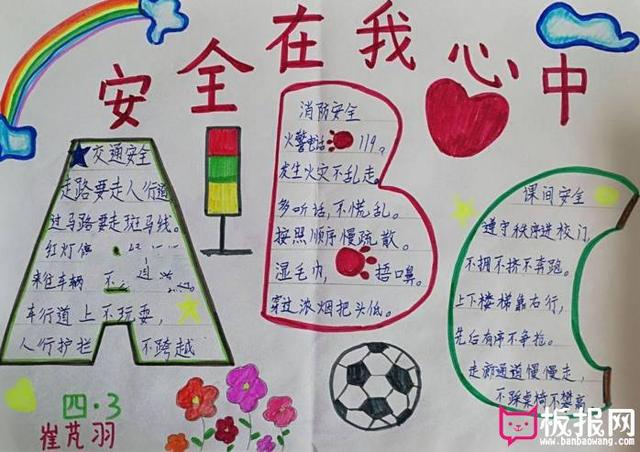 安全在我心中
交通安全
走路要走人行道
过马路要走斑马线。
红灯停
来往车辆 不
车行道上不玩耍,
人行护栏 不跨越
消防安全
火警电话 119。
发生火灾不乱走。
多听话,不慌乱。
按照顺序慢疏散。
湿毛巾, 捂口鼻。
穿过浓烟把头低。
课间安全
遵守秩序进校门,
不拥不挤不奔跑。
上下楼梯靠右行,
先后有序不争抢。
走廊通道慢慢走,
不踩桌椅不攀高
四·3
崔芃羽
板报网
www.banbaowang.com